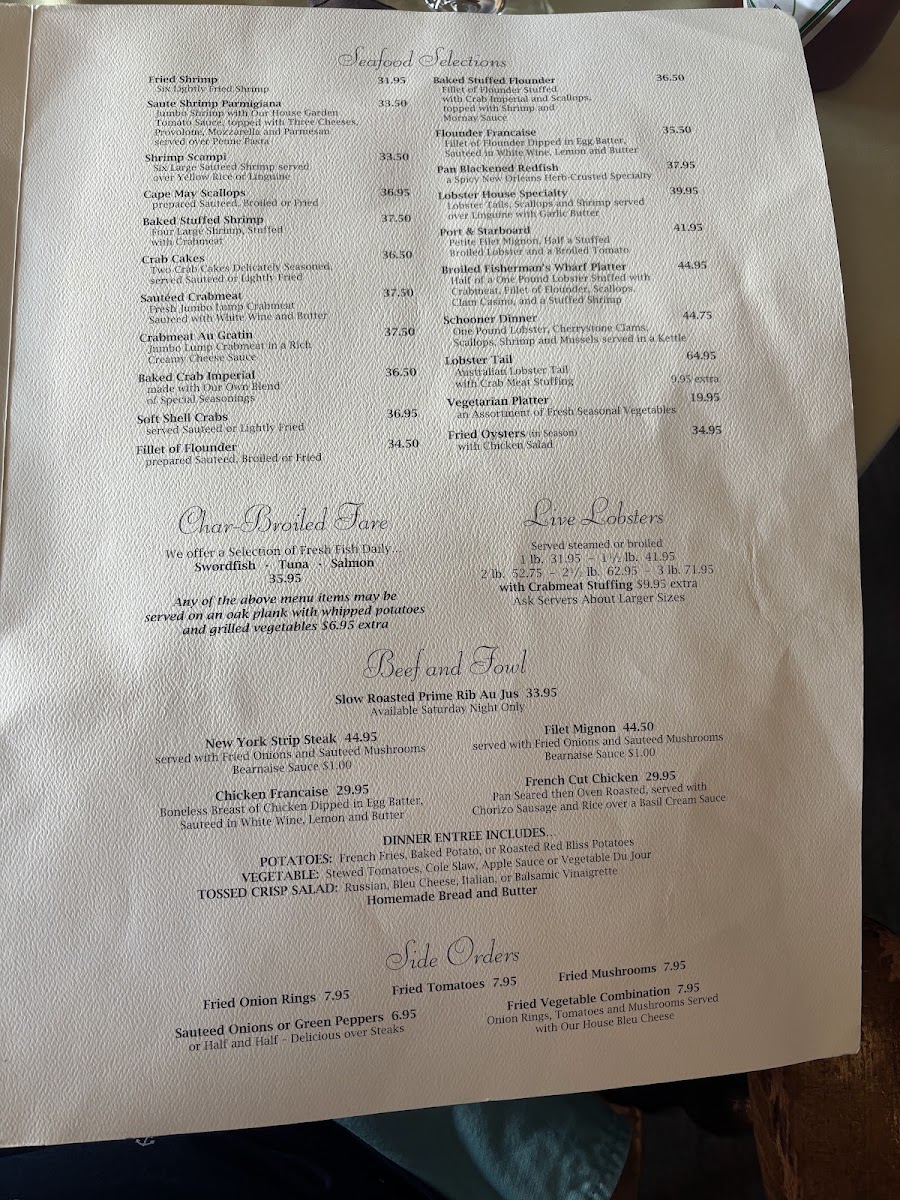 Seafood Selections
Fried Shrimp 31.95
Six Lightly Fried Shrimp
Saute Shrimp Parmigiana 33.50
Jumbo Shrimp with Our House Garden
Tomato Sauce, topped with Three Cheeses,
Provolone, Mozzarella and Parmesan
served over Penne Pasta
Shrimp Scampi 33.50
Six Large Sauteed Shrimp served
over Yellow Rice or Linguine
Cape May Scallops 36.95
prepared Sauteed, Broiled or Fried
Baked Stuffed Shrimp 37.50
Four Large Shrimp, Stuffed
with Crabmeat
Crab Cakes 36.50
Two Crab Cakes Delicately Seasoned,
served Sauteed or Lightly Fried
Sautéed Crabmeat 37.50
Fresh Jumbo Lump Crabmeat
Sauteed with White Wine and Butter
Crabmeat Au Gratin 37.50
Jumbo Lump Crabmeat in a Rich
Creamy Cheese Sauce
Baked Crab Imperial 36.50
made with Our Own Blend
of Special Seasonings
Soft Shell Crabs 36.95
served Sauteed or Lightly Fried
Fillet of Flounder 34.50
prepared Sauteed, Broiled or Fried
Baked Stuffed Flounder 36.50
Fillet of Flounder Stuffed
with Crab Imperial and Scallops,
topped with Shrimp and
Mornay Sauce
Flounder Francaise 35.50
Fillet of Flounder Dipped in Egg Batter,
Sauteed in White Wine, Lemon and Butter
Pan Blackened Redfish 37.95
a Spicy New Orleans Herb-Crusted Specialty
Lobster House Specialty 39.95
Lobster Tails, Scallops and Shrimp served
over Linguine with Garlic Butter
Port & Starboard 41.95
Petite Filet Mignon, Half a Stuffed
Broiled Lobster and a Broiled Tomato
Broiled Fisherman's Wharf Platter 44.95
Half of a One Pound Lobster Stuffed with
Crabmeat, Fillet of Flounder, Scallops,
Clam Casino, and a Stuffed Shrimp
Schooner Dinner 44.75
One Pound Lobster, Cherrystone Clams,
Scallops, Shrimp and Mussels served in a Kettle
Lobster Tail 64.95
Australian Lobster Tail
with Crab Meat Stuffing 9.95 extra
Vegetarian Platter 19.95
an Assortment of Fresh Seasonal Vegetables
Fried Oysters (in Season) 34.95
with Chicken Salad
Char-Broiled Fare
We offer a Selection of Fresh Fish Daily...
Swordfish · Tuna · Salmon
35.95
Any of the above menu items may be
served on an oak plank with whipped potatoes
and grilled vegetables $6.95 extra
Live Lobsters
Served steamed or broiled
1 lb. 31.95 – 1½ lb. 41.95
2 lb. 52.75 – 2½ lb. 62.95 – 3 lb. 71.95
with Crabmeat Stuffing $9.95 extra
Ask Servers About Larger Sizes
Beef and Fowl
Slow Roasted Prime Rib Au Jus 33.95
Available Saturday Night Only
New York Strip Steak 44.95
served with Fried Onions and Sauteed Mushrooms
Bearnaise Sauce $1.00
Filet Mignon 44.50
served with Fried Onions and Sauteed Mushrooms
Bearnaise Sauce $1.00
Chicken Francaise 29.95
Boneless Breast of Chicken Dipped in Egg Batter,
Sauteed in White Wine, Lemon and Butter
French Cut Chicken 29.95
Pan Seared then Oven Roasted, served with
Chorizo Sausage and Rice over a Basil Cream Sauce
DINNER ENTREE INCLUDES...
POTATOES: French Fries, Baked Potato, or Roasted Red Bliss Potatoes
VEGETABLE: Stewed Tomatoes, Cole Slaw, Apple Sauce or Vegetable Du Jour
TOSSED CRISP SALAD: Russian, Bleu Cheese, Italian, or Balsamic Vinaigrette
Homemade Bread and Butter
Side Orders
Fried Onion Rings 7.95
Fried Tomatoes 7.95
Fried Mushrooms 7.95
Sauteed Onions or Green Peppers 6.95
or Half and Half – Delicious over Steaks
Fried Vegetable Combination 7.95
Onion Rings, Tomatoes and Mushrooms Served
with Our House Bleu Cheese